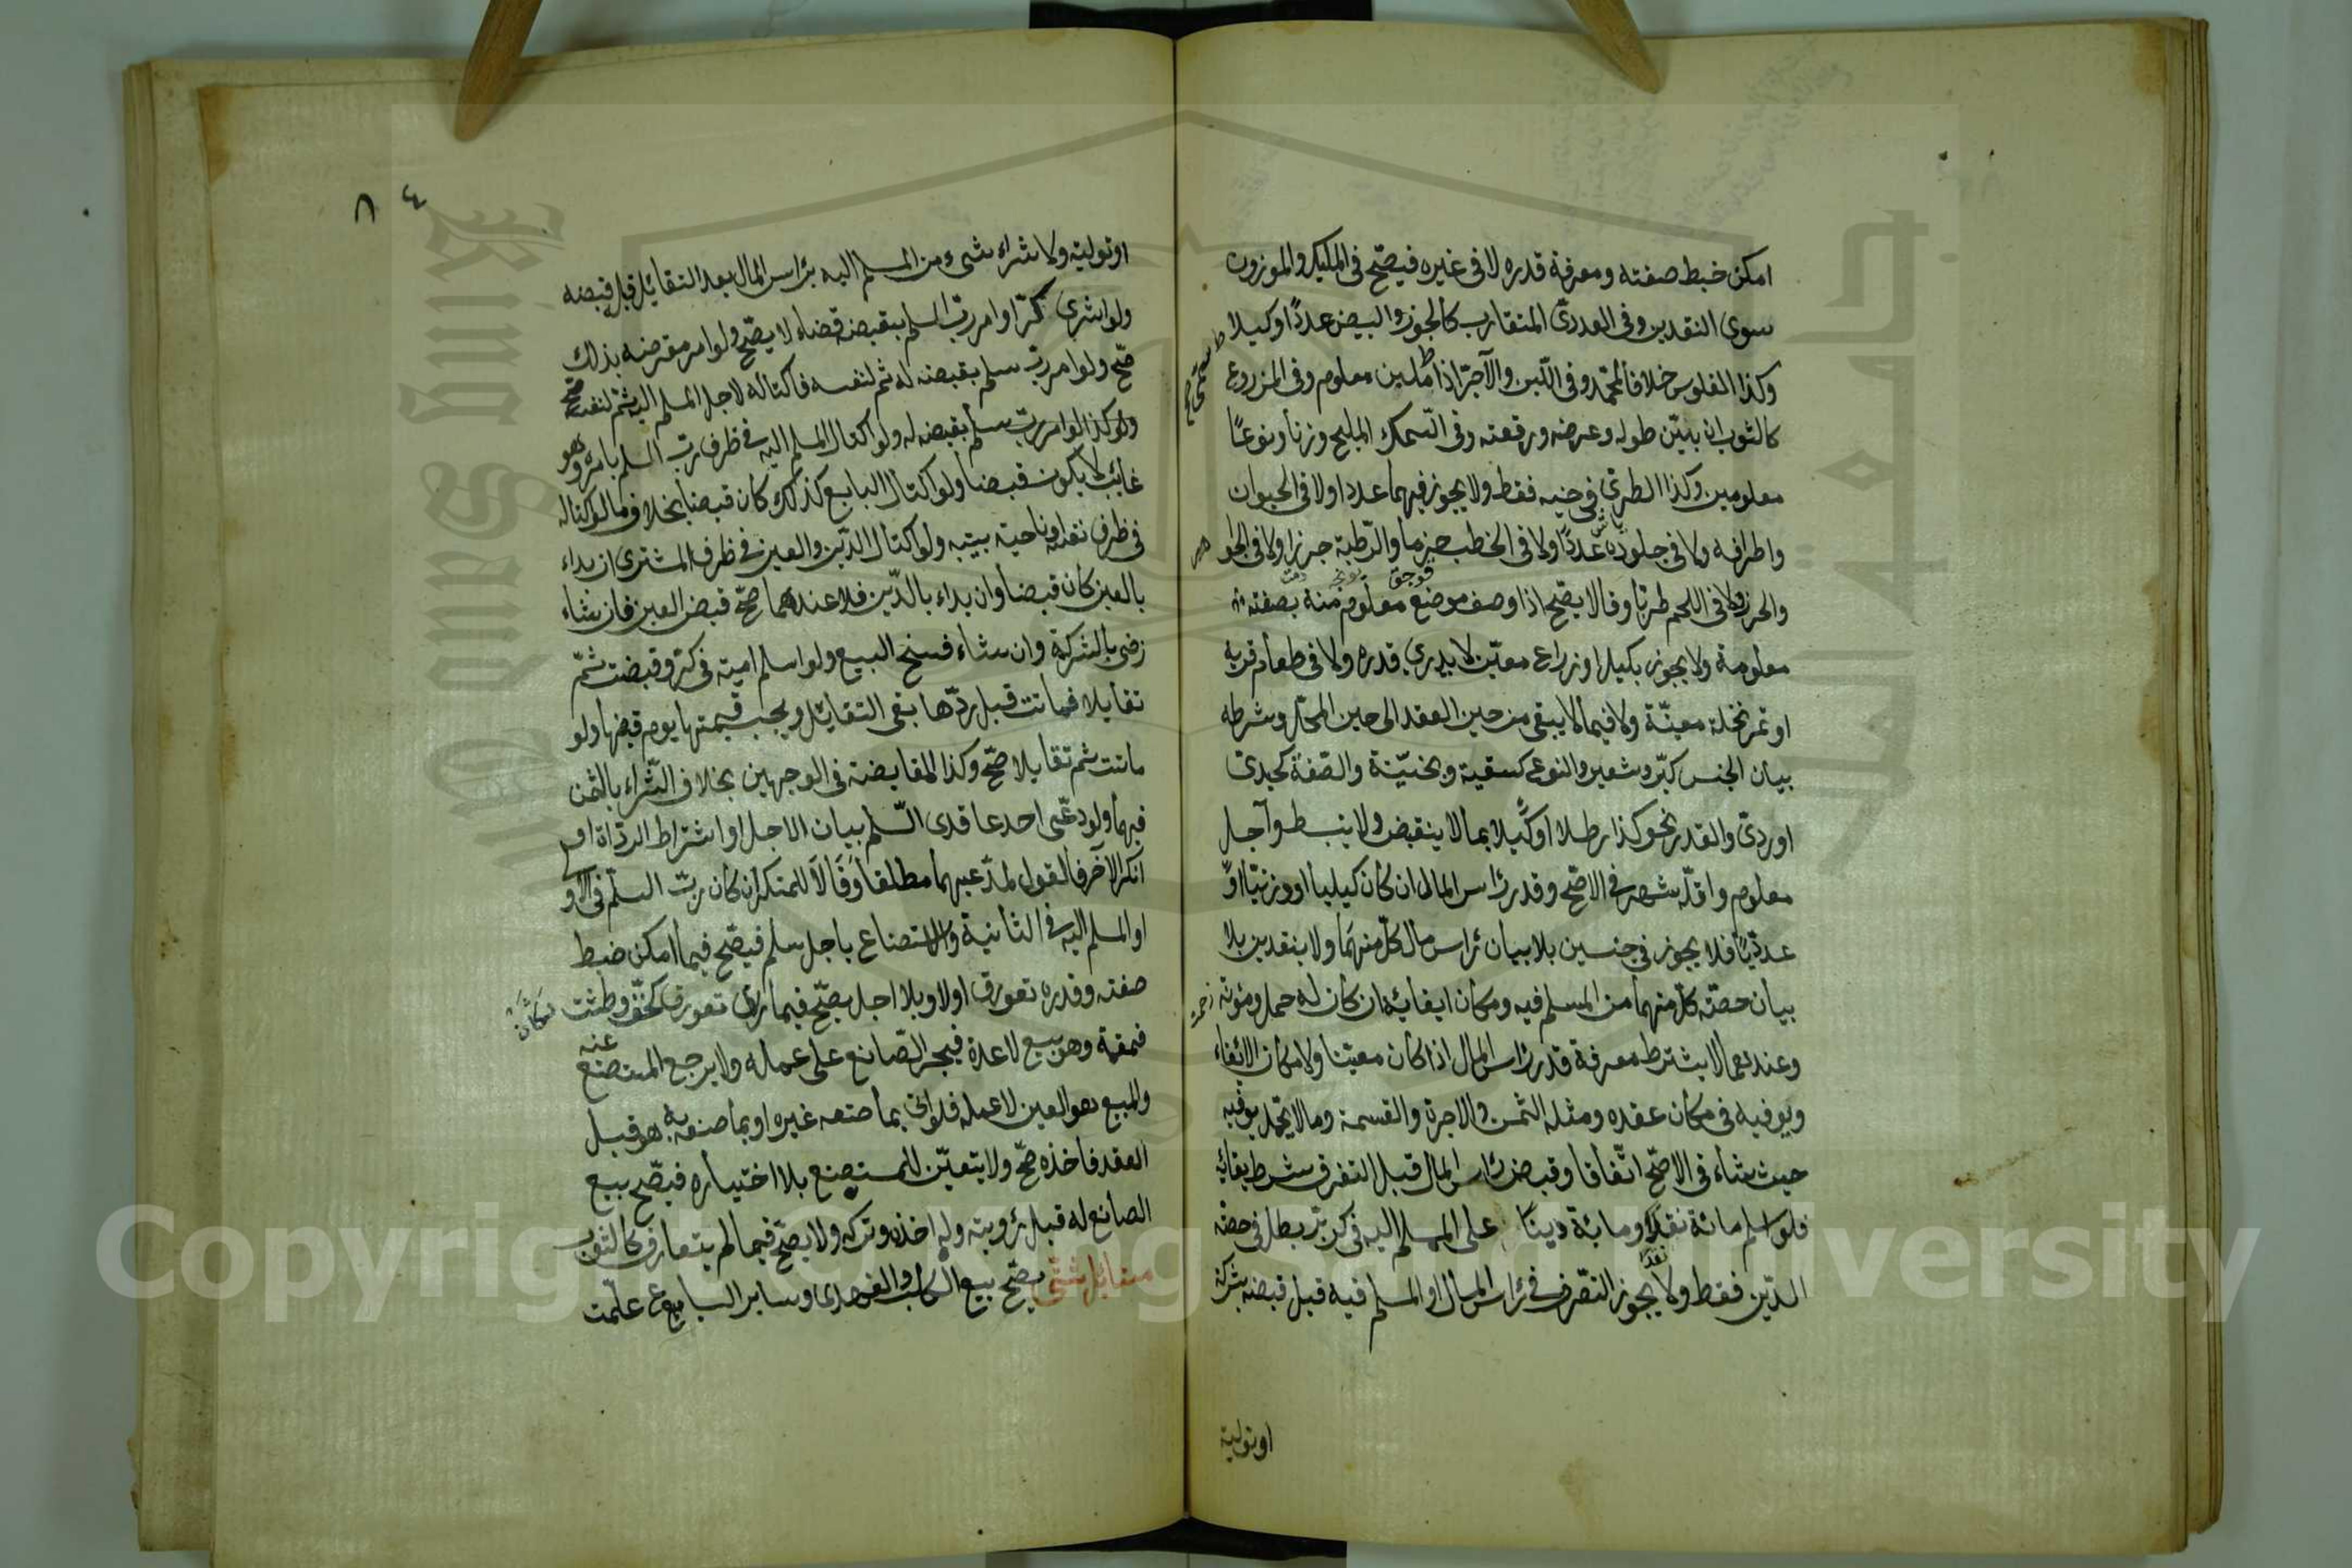 امكن ضبط صفته ومعرفة قدره لا فى غيره فيصّح فى المكيل والموزون
سوى النقدين وفى العددىّ المتقارب كالجوز والبيض عددًا وكيلا
وكذا الفلوس خلافا لمحمّد وفى اللّبن والآجرّ اذا ملبن معلوم وفى المزروع
كالثوب ان بيّن طوله وعرضه ورقعته وفى السّمك المليح وزنا ونوعًا
معلومين وكذا الطرىّ فى حينه فقط ولا يجوز فيهما عددا ولا فى الحيوان
واطرافه ولا فى جلوده عددًا ولا فى الحطب حزما والرّطبة جرزا ولا فى الجواهر
والخرز ولا فى اللحم طريّا وقالا يصّح اذا وصف موضع معلوم منه بصفته
معلومة ولا يجوز بكيل او ذراع معيّن لا يدرى قدره ولا فى طعام قرية
او تمر نخلة معيّنة ولا فيما لا يبقى من حين العقد الى حين المحلّ وشرطه
بيان الجنس كبرّ وشعير والنوع كسقية وبخسيّة والصّفة كجيدة
او ردىّ والقدر نحو كذا رطلا او كيلا بما لا ينقبض ولا ينبسط وآجل
معلوم واقلّه شهر فى الاصّح وقدر رأس المال ان كان كيليا او وزنيّا او
عدديّا فلا يجوز فى جنسين بلا بيان رأس مال كلّ منهما ولا بنقدين بلا
بيان حصّته كلّ منهما من المسلم فيه ومكان ايفائه ان كان له حمل ومؤنة
وعندهما لا يشترط معرفة قدر رأس المال اذا كان معيّنا ولا مكان الائفاء
ويوفيه فى مكان عقده ومثله الثمن والاجرة والقسمة وما لا يحمل يوفيه
حيث شاء فى الاصّح اتّفاقا وقبض رأس المال قبل التفرق شرط بقائه
فلو اسلم مائة نقدًا ومائة دينًا على المسلم اليه فى كرّ برّ بطل فى حصّة
الدّين فقط ولا يجوز التصّرف فى رأس المال او المسلم فيه قبل قبضه بشركة
نقدًا
اوتولية
٨٤
او تولية ولا شراء شىء من المسلم اليه برأس المال بعد التقائل قبل قبضه
ولو اشترى كرّا وامر ربّ السلم بقبضه قضاء لا يصّح ولو امر مقرضه بذلك
صّح ولو امر ربّ سلم بقبضه له ثم لنفسه فاكتاله لاجل المسلم اليه ثم لنفسه صّح
ولو كذا لو امر ربّ سلم بقبضه له ولو اكتال المسلم اليه فى ظرف ربّ السلم بامره وهو
غائب لا يكون قبضا ولو اكتال البايع كذلك كان قبضا بخلاف ما لو اكتاله
فى ظرف نفسه او ناحية بيته ولو اكتال الدّين والعين فى ظرف المشترى ان بداء
بالعين كان قبضا وان بداء بالدّين فلا عندهما صّح قبض العين فان شاء
رضى بالشركة وان شاء فسخ البيع ولو اسلم امة فى كرّ وقبضت ثمّ
تقايلا فماتت قبل ردّها بقى التقائل ويجب قيمتها يوم قبضها ولو
ماتت ثم تقايلا صّح وكذا المقايضة فى الوجهين بخلاف الشّراء بالثمن
فيهما ولو دعّى احد عاقدى السّلم بيان الاجل او اشتراط الردّاءة او
انكر الآخر فالقول لمدّعيهما مطلقا وقالا للمنكر ان كان ربّ السلم فى الاو
او المسلم اليه فى الثانية والاستصناع باجل سلم فيصّح فيما امكن ضبط
صفته وقدره تعورف اولا وبلا اجل يصّح فيما تعورف كخفّ وطشت
قمقمة وهو بيع لا عدة فيجبر الصّانع على عمله ولا يرجع المستصنع عنه
والمبيع هو العين لا عمله فلو اتى بما صنعه غيره او بما صنعه هو قبل
العقد فاخذه صّح ولا يتعيّن للمستصنع بلا اختياره فيصّح بيع
الصانع له قبل رؤيته وله اخذه وتركه ولا يصّح فيما لم يتعارف كالثوب
مسائل شتّى يصّح بيع الكلب والفهد وساير السباع علّمت